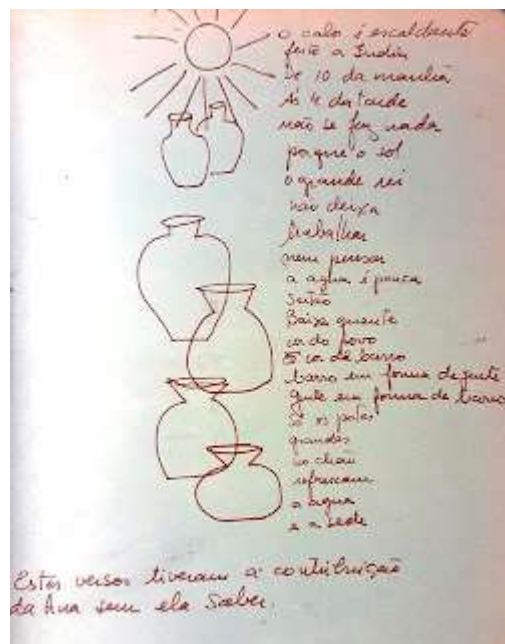 o calo é escaldante
feito a Índia
De 10 da manhã
Às 4 da tarde
não se faz nada
porque o sol
o grande rei
não deixa
trabalhar
nem pensar
a agua é pouca
Sertão
Baixa quente
do povo
de barro
barro em forma de gente
gente em forma de barro
Só os potes
grandes
no chão
refrescam
a agua
e a sede
Estes versos tiveram a contribuição
da Ana sem ela saber.